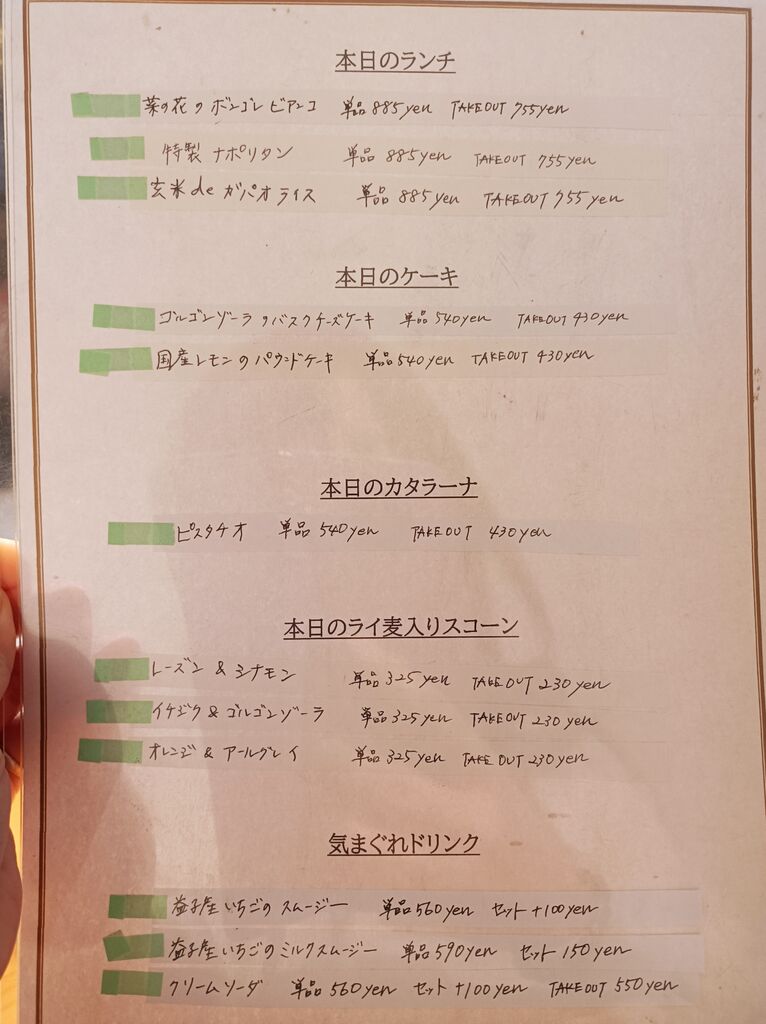 本日のランチ
菜の花のボンゴレビアンコ 単品885yen TAKEOUT 755yen
特製ナポリタン 単品885yen TAKEOUT 755yen
玄米deガパオライス 単品885yen TAKEOUT 755yen
本日のケーキ
ゴルゴンゾーラのバスクチーズケーキ 単品540yen TAKEOUT 430yen
国産レモンのパウンドケーキ 単品540yen TAKEOUT 430yen
本日のカタラーナ
ピスタチオ 単品540yen TAKEOUT 430yen
本日のライ麦入りスコーン
レーズン&シナモン 単品325yen TAKEOUT 230yen
イチジク&ゴルゴンゾーラ 単品325yen TAKEOUT 230yen
オレンジ&アールグレイ 単品325yen TAKEOUT 230yen
気まぐれドリンク
益子産いちごのスムージー 単品560yen セット+100yen
益子産いちごのミルクスムージー 単品590yen セット150yen
クリームソーダ 単品560yen セット+100yen TAKEOUT 550yen